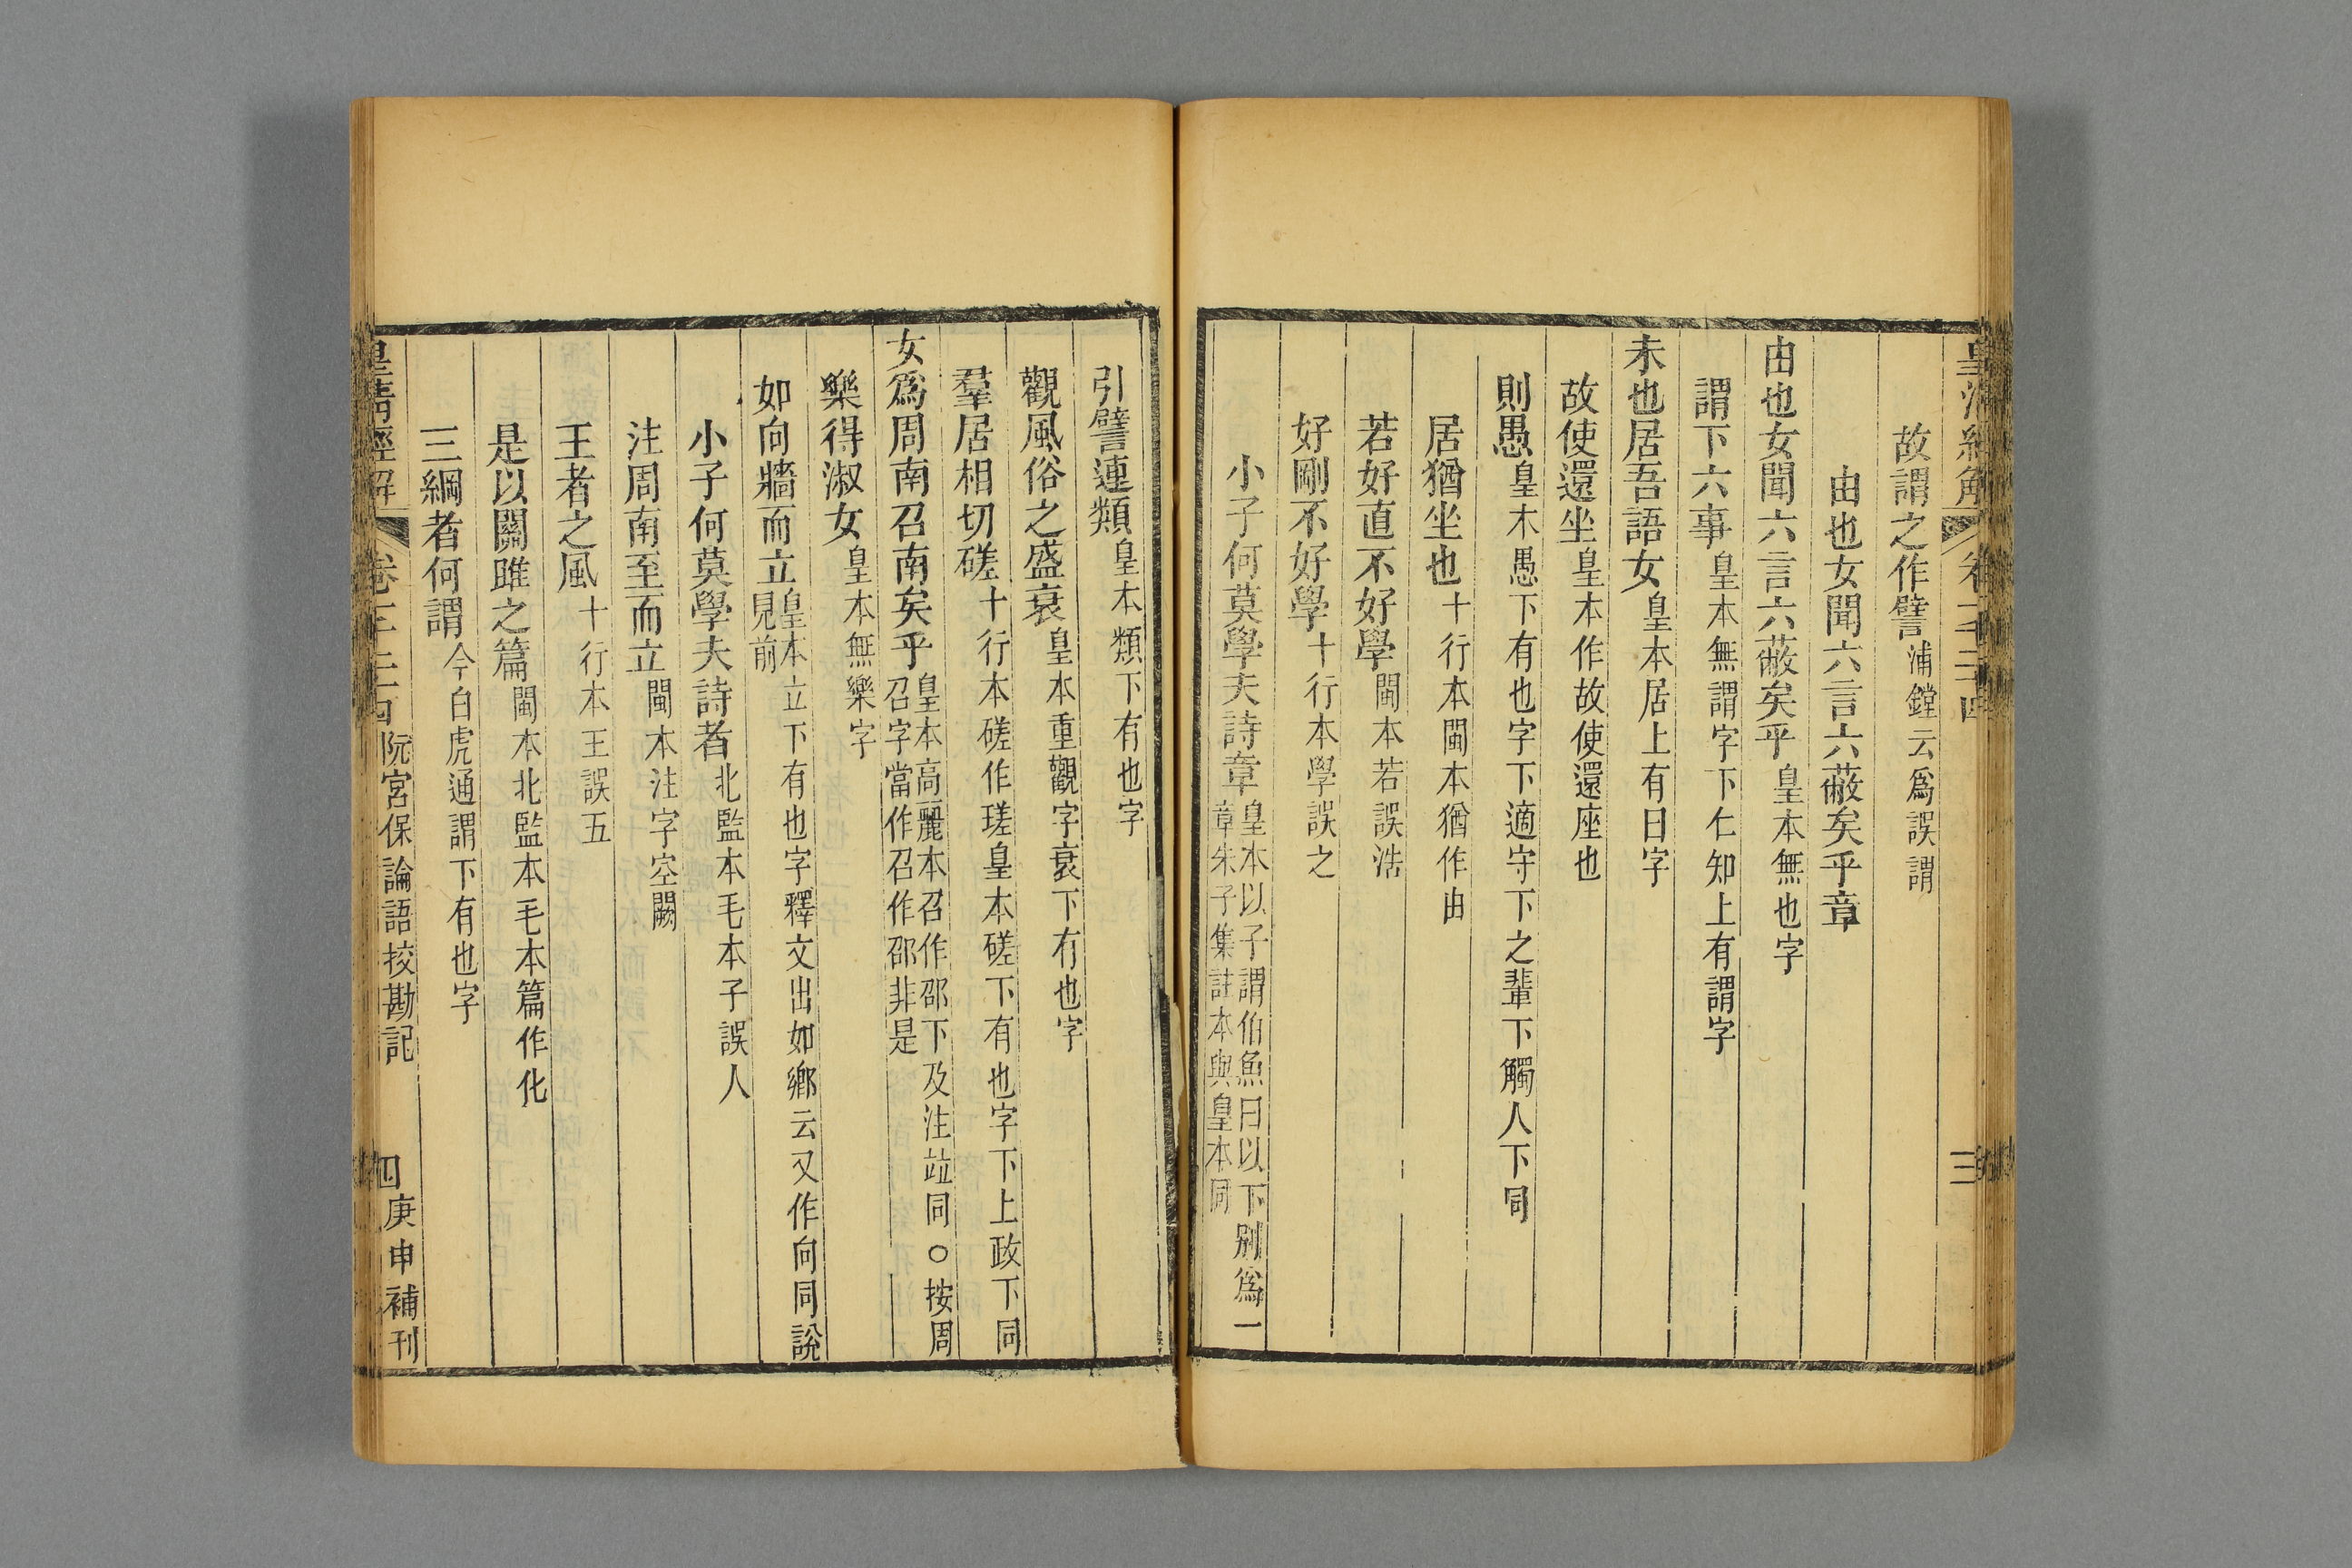 故謂之作譬浦鏜云爲誤謂
由也女聞六言六蔽矣乎章
由也女聞六言六蔽矣乎皇本無也字
謂下六事皇本無謂字下仁知上有謂字
未也居吾語女皇本居上有曰字
故使還坐皇本作故使還座也
則愚皇本愚下有也字下適守下之輩下觸人下同
居猶坐也十行本閩本猶作由
若好直不好學閩本若誤浩
好剛不好學十行本學誤之
小子何莫學夫詩章皇本以子謂伯魚曰以下別爲一
章朱子集註本與皇本同
三
引譬連類皇本類下有也字
觀風俗之盛衰皇本重觀字衰下有也字
羣居相切磋十行本磋作瑳皇本磋下有也字下上政下同
女爲周南召南矣乎皇本高麗本召作邵下及注竝同○按周
召字當作召作邵非是
樂得淑女皇本無樂字
如向牆而立皇本立下有也字釋文出如鄉云又作向同說
見前
小子何莫學夫詩者北監本毛本子誤人
注周南至而立閩本注字空闕
王者之風十行本王誤五
是以關雎之篇閩本北監本毛本篇作化
三綱者何謂今白虎通謂下有也字
皇清經解 阮宮保論語挍勘記 四 庚申補刊